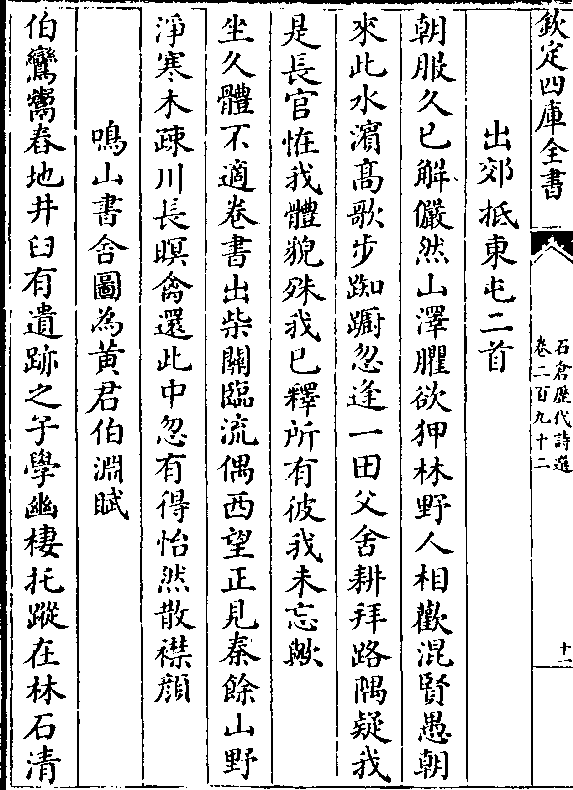 欽定四庫全書
石倉歷代詩選
卷二百九十二
十一
出郊抵東屯二首
朝服久已解儼然山澤臞欲狎林野人相歡混賢愚朝
來此水濵髙歌步踟蹰忽逢一田父舍耕拜路隅疑我
是長官怪我體貌殊我已釋所有彼我未忘歟
坐久體不適卷書出柴關臨流偶西望正見秦餘山野
淨寒木疎川長暝禽還此中忽有得怡然散襟顔
鳴山書舍圖為黄君伯淵賦
伯鸞鬻舂地井臼有遺跡之子學幽棲托蹤在林石清